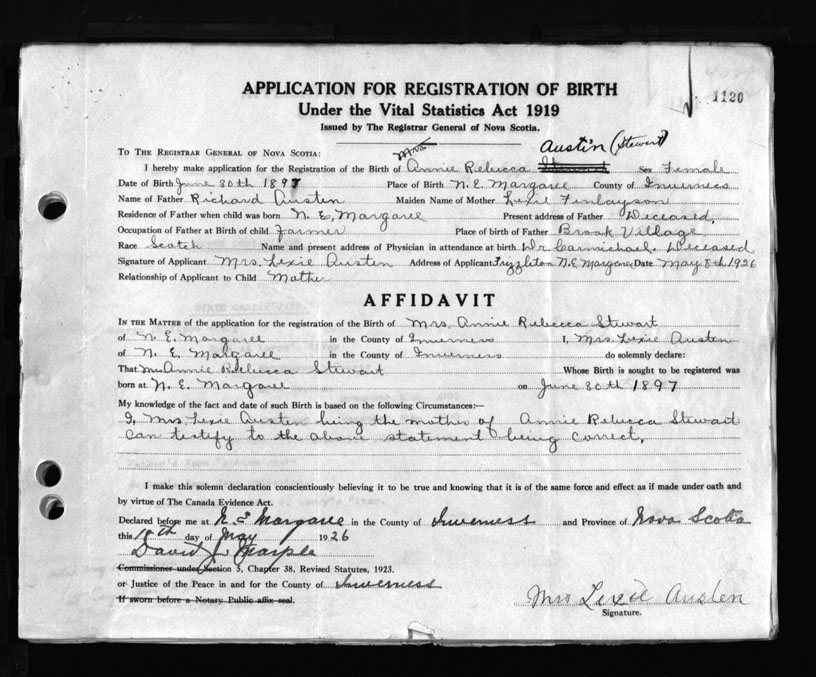 1120
APPLICATION FOR REGISTRATION OF BIRTH
Under the Vital Statistics Act 1919
Issued by The Registrar General of Nova Scotia.
Austin (Stewart)
TO THE REGISTRAR GENERAL OF NOVA SCOTIA:
I hereby make application for the Registration of the Birth of Mrs. Annie Rebecca Stewart Sex Female
Date of Birth June 30th 1897 Place of Birth N. E. Margaree County of Inverness
Name of Father Richard Austen Maiden Name of Mother Lexie Finlayson
Residence of Father when child was born N. E. Margaree Present address of Father Deceased.
Occupation of Father at Birth of child Farmer Place of birth of Father Brook Village
Race Scotch Name and present address of Physician in attendance at birth Dr. Carmichael, Deceased
Signature of Applicant Mrs. Lexie Austen Address of Applicant Frizzleton N.E. Margaree Date May 8th 1926
Relationship of Applicant to Child Mother
AFFIDAVIT
IN THE MATTER of the application for the registration of the Birth of Mrs. Annie Rebecca Stewart
of N. E. Margaree in the County of Inverness I, Mrs. Lexie Austen
of N. E. Margaree in the County of Inverness do solemnly declare:
That Mrs Annie Rebecca Stewart Whose Birth is sought to be registered was
born at N. E. Margaree on June 30th 1897
My knowledge of the fact and date of such Birth is based on the following Circumstances:—
I, Mrs. Lexie Austen being the mother of Annie Rebecca Stewart
can testify to the above statement being correct.
I make this solemn declaration conscientiously believing it to be true and knowing that it is of the same force and effect as if made under oath and
by virtue of The Canada Evidence Act.
Declared before me at N. E. Margaree in the County of Inverness and Province of Nova Scotia
this 18th day of May 1926
David Marple
Commissioner under Section 5, Chapter 38, Revised Statutes, 1923.
or Justice of the Peace in and for the County of Inverness
If sworn before a Notary Public affix seal.
Mrs Lexie Austen
Signature.